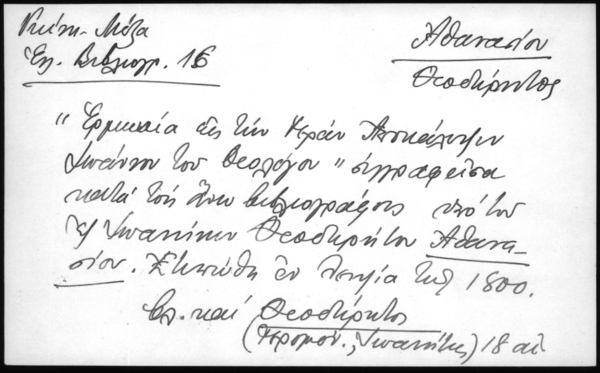 Γκίνη - Μέξα
Ἑλ. Βιβλιογρ. 16
Ἀθανασίου
Θεοδώρητος
"Ἑρμηνεία εἰς τὴν Ἱερὰν Ἀποκάλυψιν
Ἰωάννου τοῦ Θεολόγου" συγγραφεῖσα
κατὰ τοὺς βιβλιογράφους ὑπὸ τοῦ
ἐξ Ἰωαννίνων Θεοδωρήτου Ἀθανα-
σίου. Ἐξεδόθη ἐν Λειψίᾳ τῷ 1800.
Βλ. καὶ Θεοδώρητος
(Ἱερομόν., Ἰωαννίτης) 18 αἰ